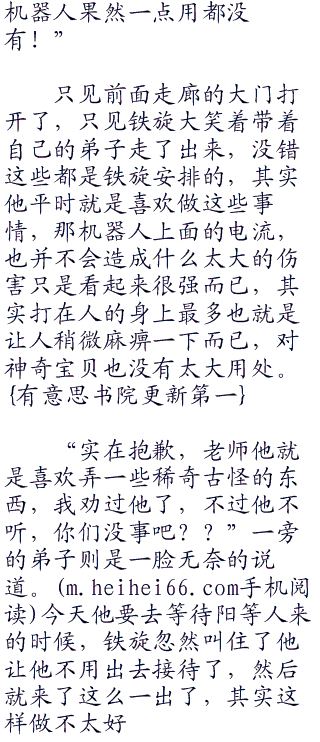 机器人果然一点用都没
有！”
只见前面走廊的大门打
开了，只见铁旋大笑着带着
自己的弟子走了出来，没错
这些都是铁旋安排的，其实
他平时就是喜欢做这些事
情，那机器人上面的电流，
也并不会造成什么太大的伤
害只是看起来很强而已，其
实打在人的身上最多也就是
让人稍微麻痹一下而已，对
神奇宝贝也没有太大用处。
{有意思书院更新第一}
“实在抱歉，老师他就
是喜欢弄一些稀奇古怪的东
西，我劝过他了，不过他不
听，你们没事吧？？”一旁
的弟子则是一脸无奈的说
道。(m.heihei66.com手机阅
读)今天他要去等待阳等人来
的时候，铁旋忽然叫住了他
让他不用出去接待了，然后
就来了这么一出了，其实这
样做不太好